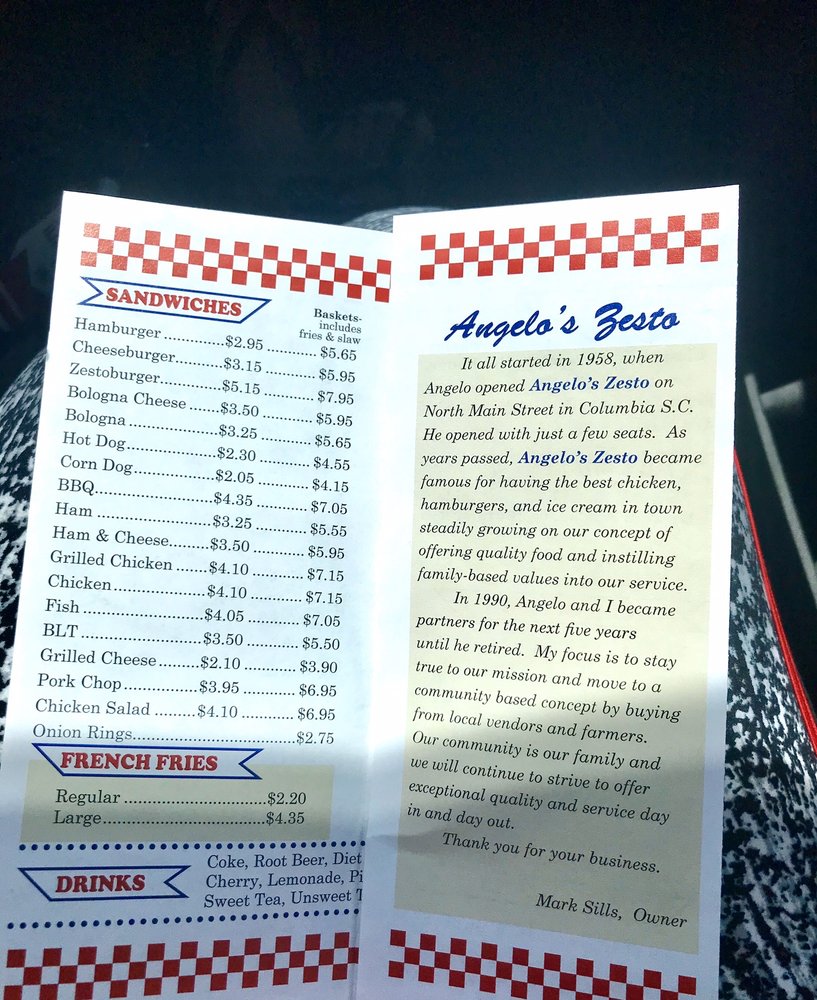 SANDWICHES
Baskets-
includes
fries & slaw
Hamburger ............$2.95 .......... $5.65
Cheeseburger..........$3.15 ............ $5.95
Zestoburger............$5.15 ............ $7.95
Bologna Cheese ......$3.50 ............ $5.95
Bologna ..................$3.25 ............ $5.65
Hot Dog..................$2.30 ............ $4.55
Corn Dog................$2.05 ............ $4.15
BBQ........................$4.35 ............ $7.05
Ham .......................$3.25 ............ $5.55
Ham & Cheese........$3.50 ............ $5.95
Grilled Chicken ......$4.10 ............ $7.15
Chicken..................$4.10 ............ $7.15
Fish ........................$4.05 ............ $7.05
BLT ........................$3.50 ............ $5.50
Grilled Cheese........$2.10 ............ $3.90
Pork Chop...............$3.95 ............ $6.95
Chicken Salad ........$4.10 ............ $6.95
Onion Rings................................$2.75
FRENCH FRIES
Regular ............................$2.20
Large................................$4.35
DRINKS
Coke, Root Beer, Diet
Cherry, Lemonade,
Sweet Tea, Unsweet
Angelo's Zesto
It all started in 1958, when
Angelo opened Angelo's Zesto on
North Main Street in Columbia S.C.
He opened with just a few seats. As
years passed, Angelo's Zesto became
famous for having the best chicken,
hamburgers, and ice cream in town
steadily growing on our concept of
offering quality food and instilling
family-based values into our service.
In 1990, Angelo and I became
partners for the next five years
until he retired. My focus is to stay
true to our mission and move to a
community based concept by buying
from local vendors and farmers.
Our community is our family and
we will continue to strive to offer
exceptional quality and service day
in and day out.
Thank you for your business.
Mark Sills, Owner